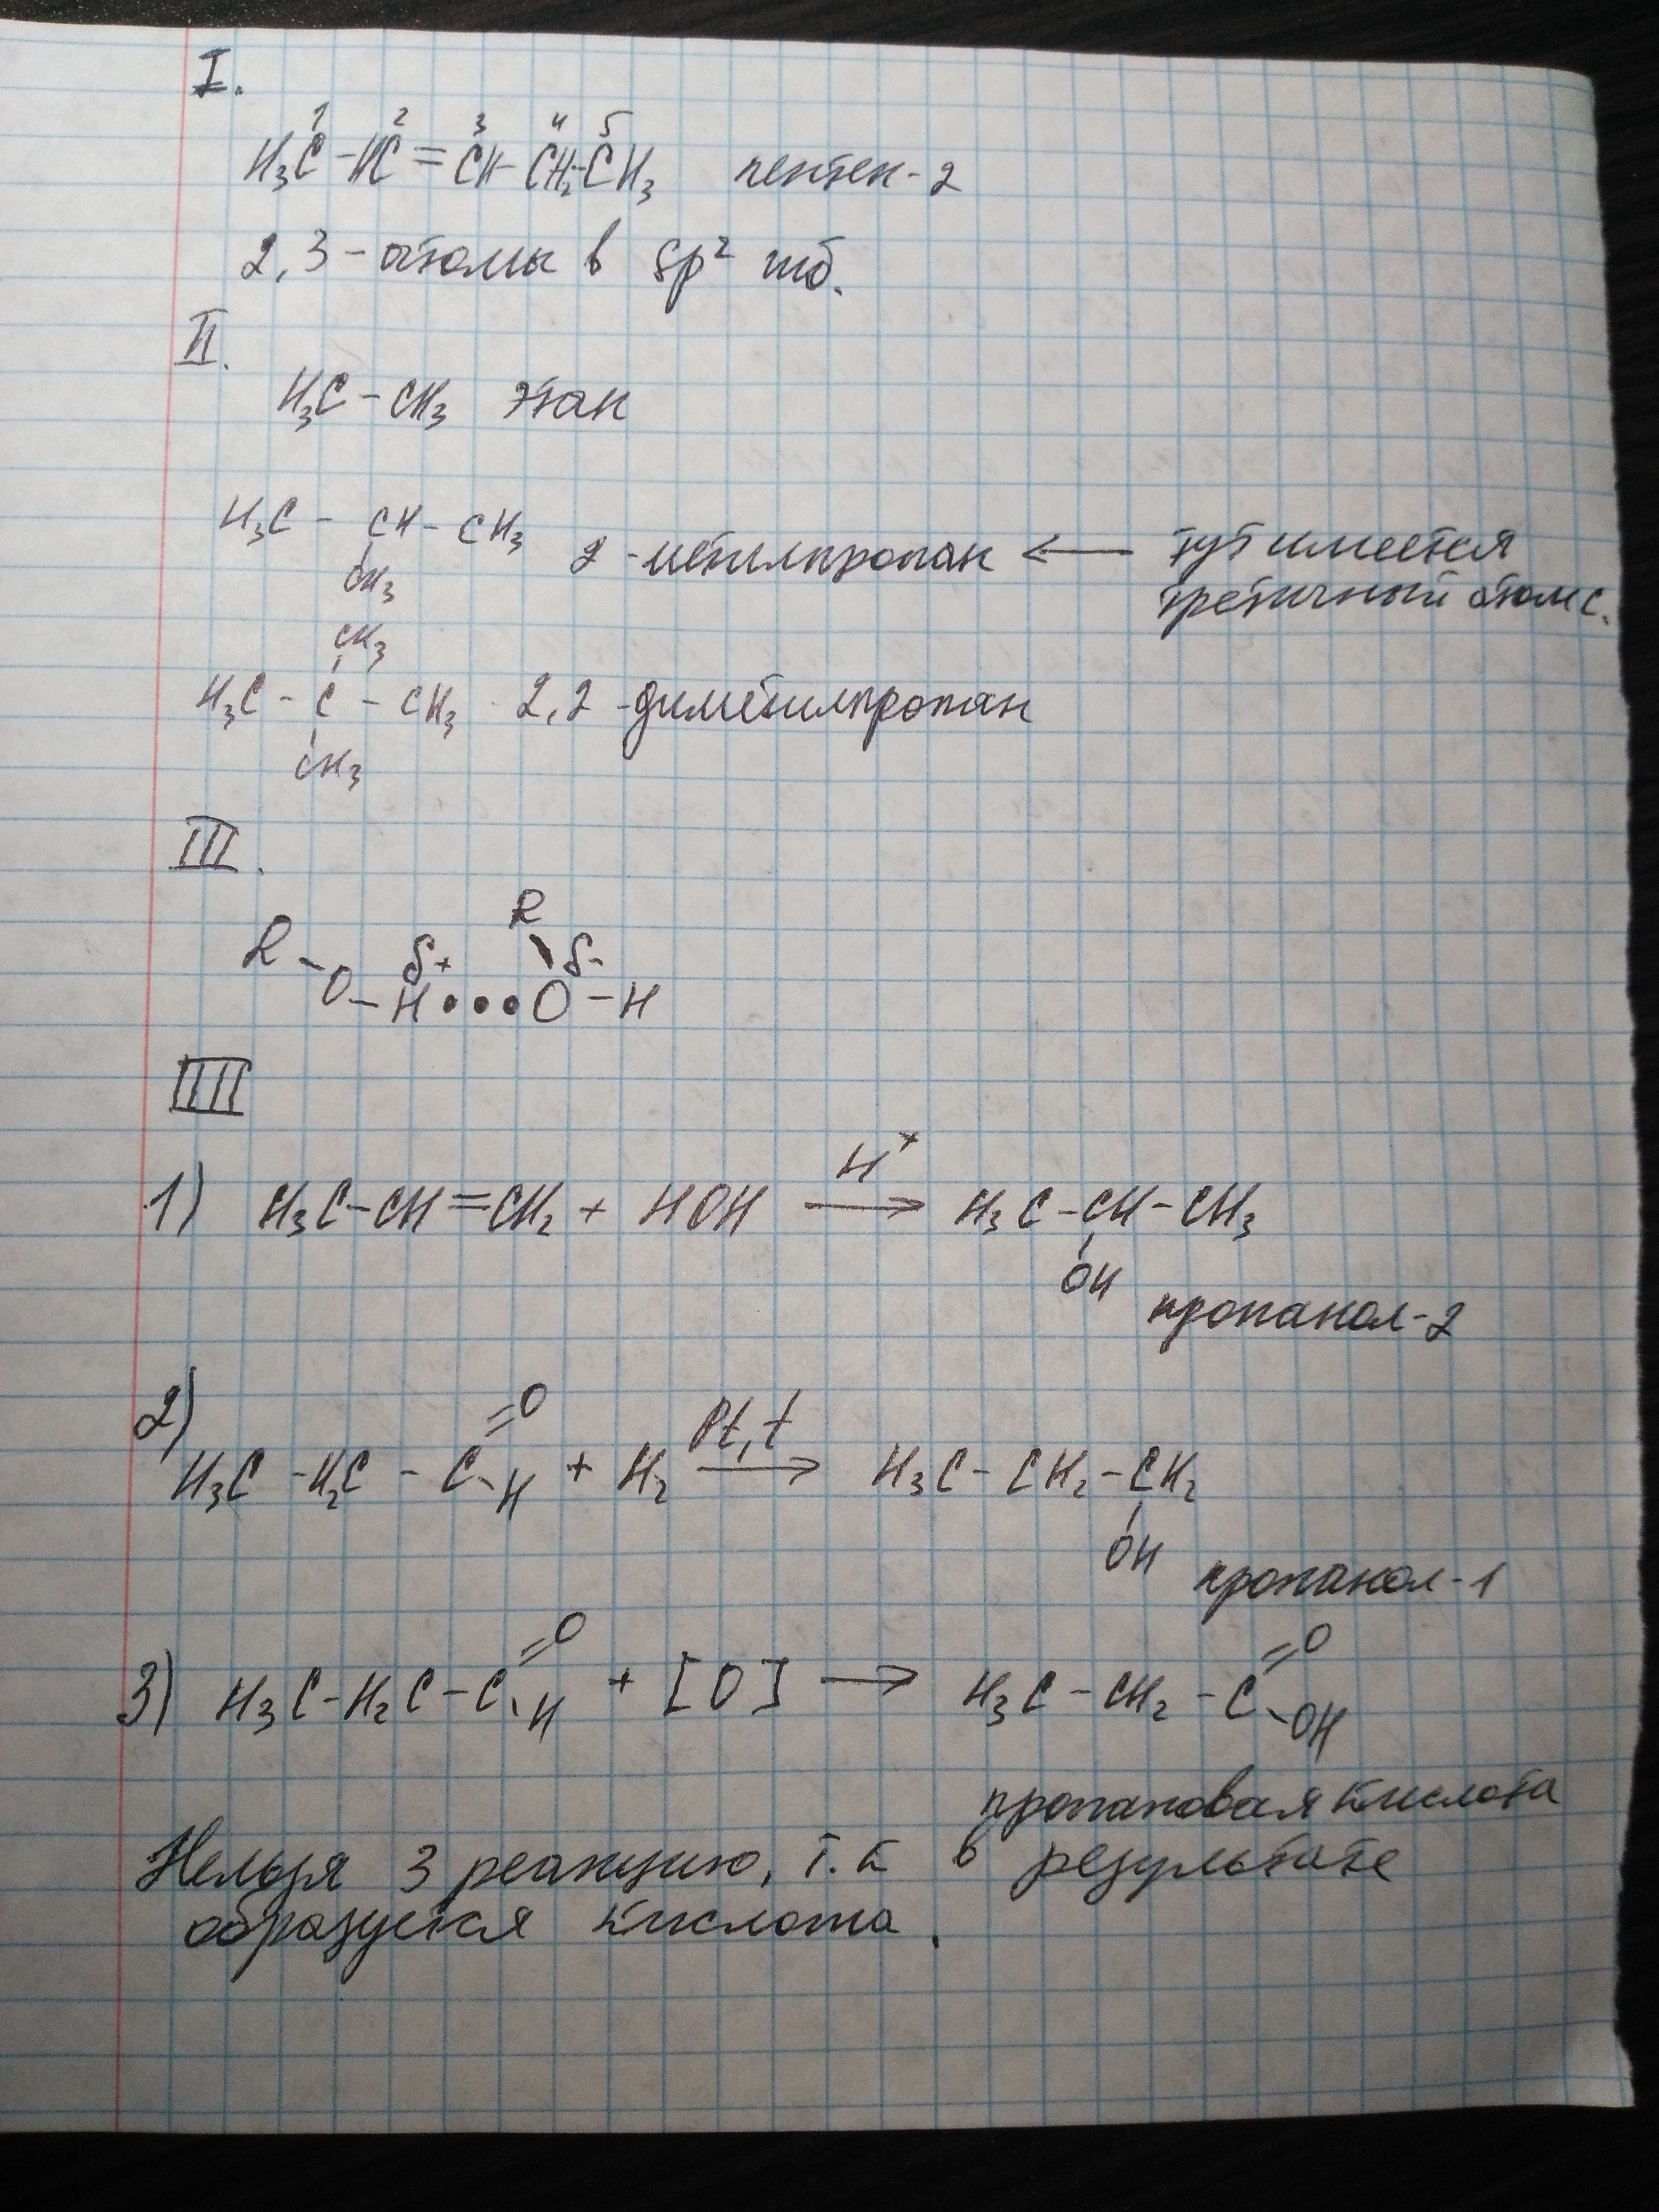 I.
1 2 3 4 5
H₃C-HC=CH-CH₂-CH₃ пентен-2
2,3-атомы в sp² гиб.
II.
H₃C-CH₃ этан
H₃C - CH - CH₃
CH₃
2-метилпропан ← тут имеется
третичный атом C.
CH₃
H₃C - C - CH₃ 2,2-диметилпропан
CH₃
III.
R
R - O - H ••• O - H
δ+ δ-
IIII
1) H₃C-CH=CH₂ + HOH →(H⁺) H₃C-CH-CH₃
OH
пропанол-2
2)
H₃C-H₂C-C=O-H + H₂ →(Pt, t) H₃C-CH₂-CH₂
OH
пропанол-1
3) H₃C-H₂C-C=O-H + [O] → H₃C-CH₂-C=O-OH
пропановая кислота
Нельзя 3 реакцию, т.к в результате
образуется кислота.